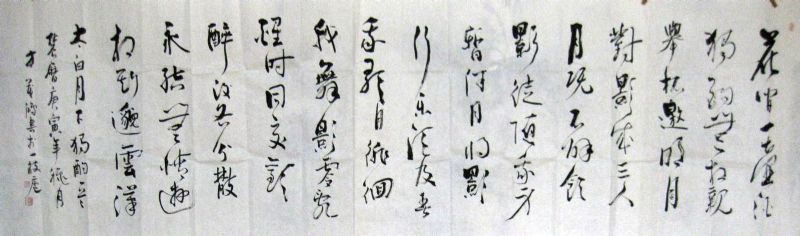 花間一壺酒
獨酌無相親
舉杯邀明月
對影成三人
月既不解飲
影徒隨我身
暫伴月將影
行樂須及春
我歌月徘徊
我舞影零亂
醒時同交歡
醉後各分散
永結無情遊
相期邈雲漢
太白月下獨酌
庚寅年秋月
書於一枝庵